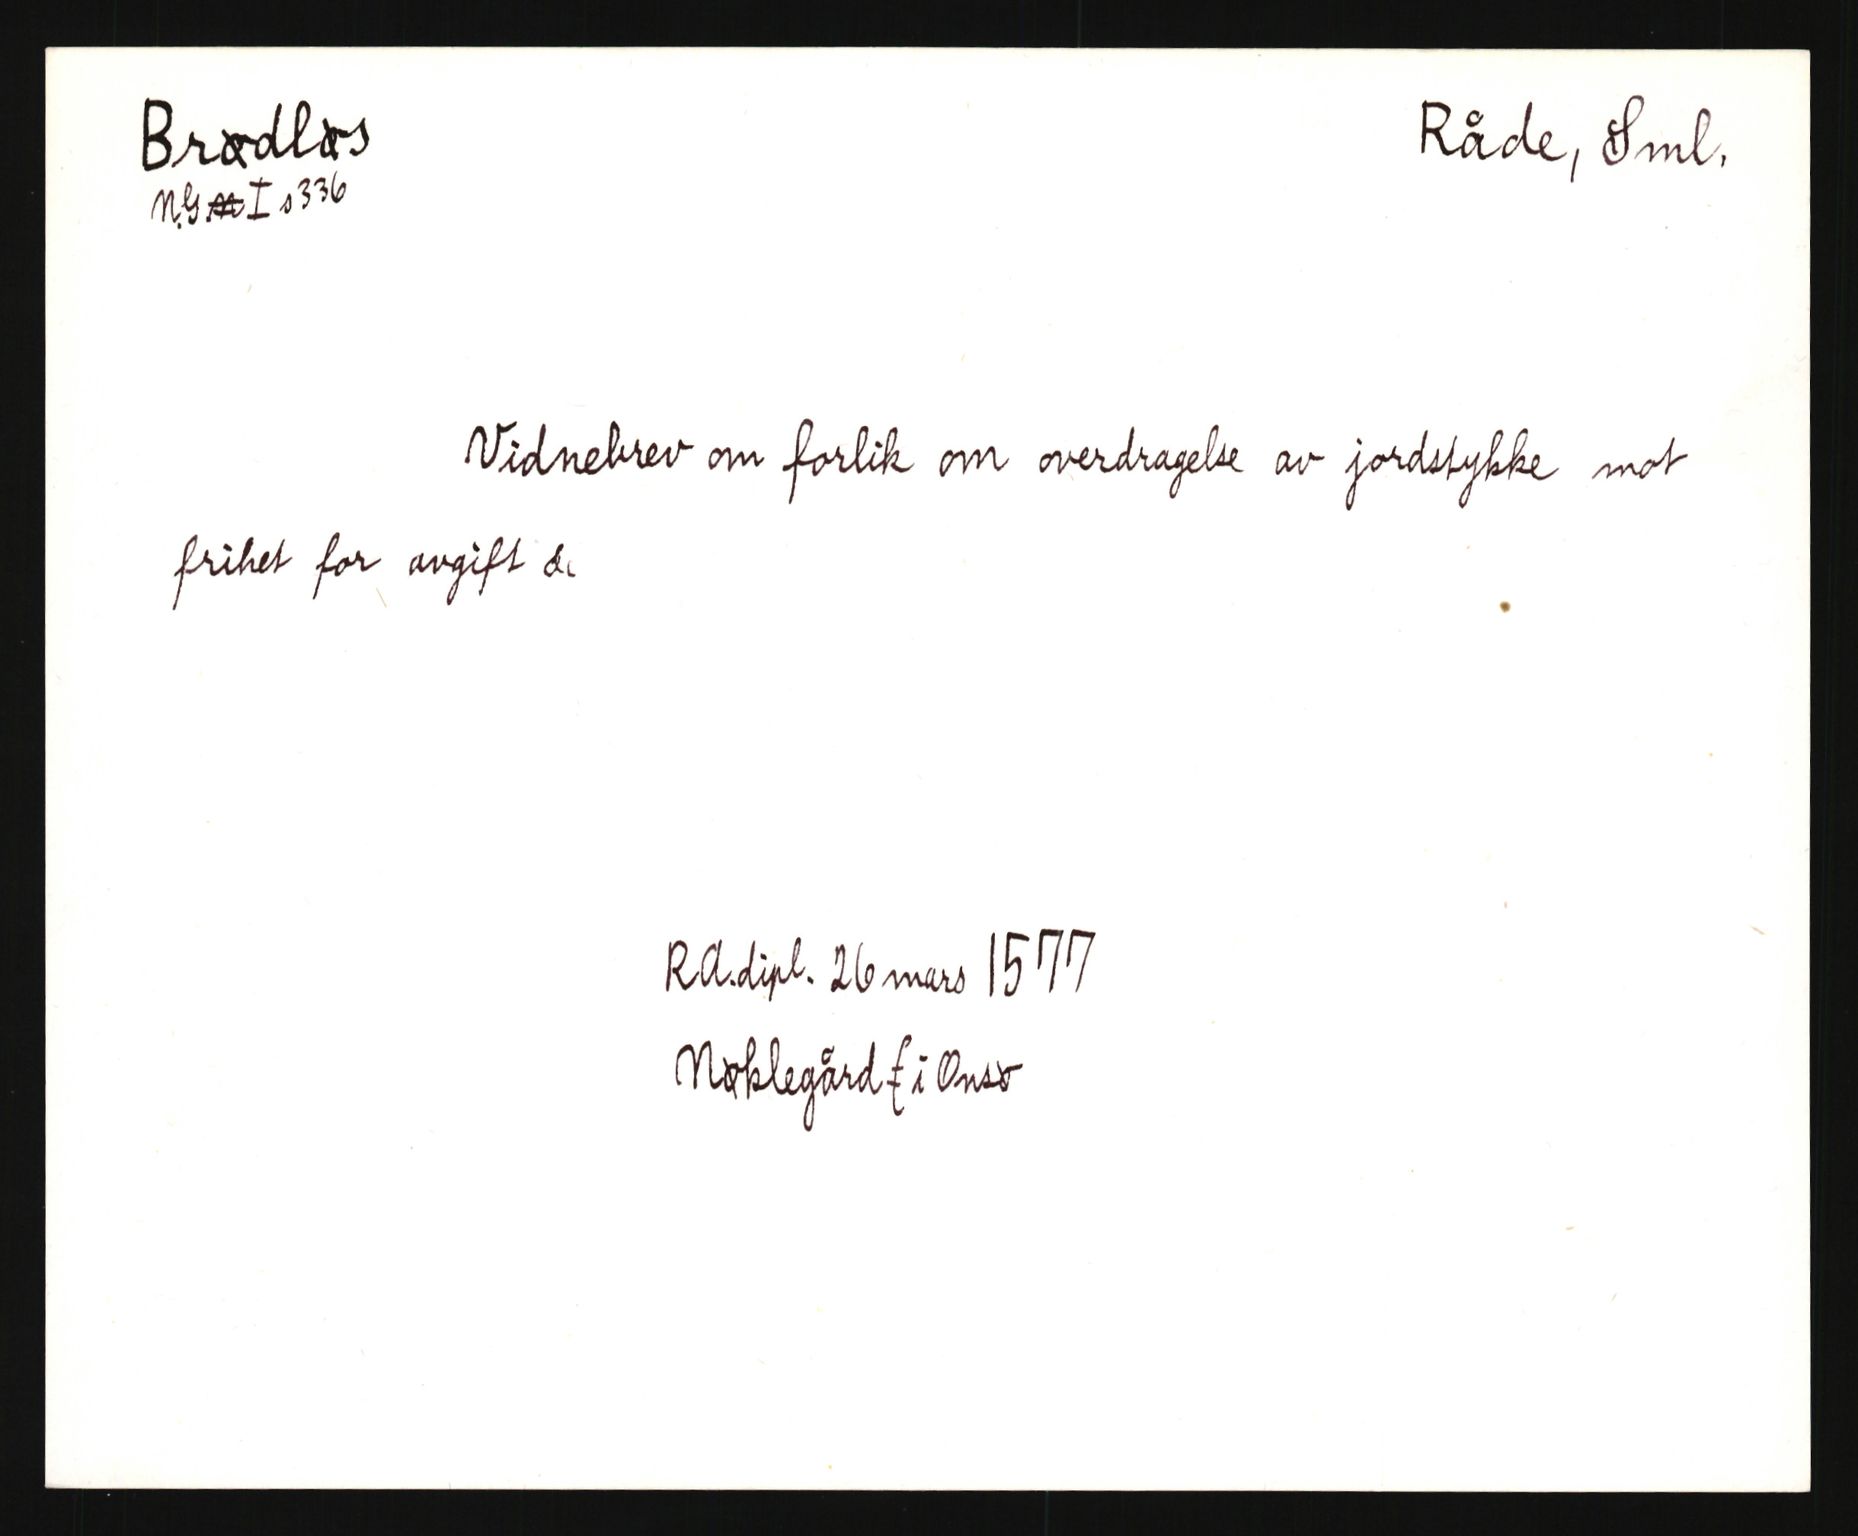 Brødløs
Råde, Sml.
N.G. I s 336
Vidnebrev om forlik om overdragelse av jordstykke mot
frihet for avgift &.
R.A.dipl. 26 mars 1577
Nøklegård £ i Onsø